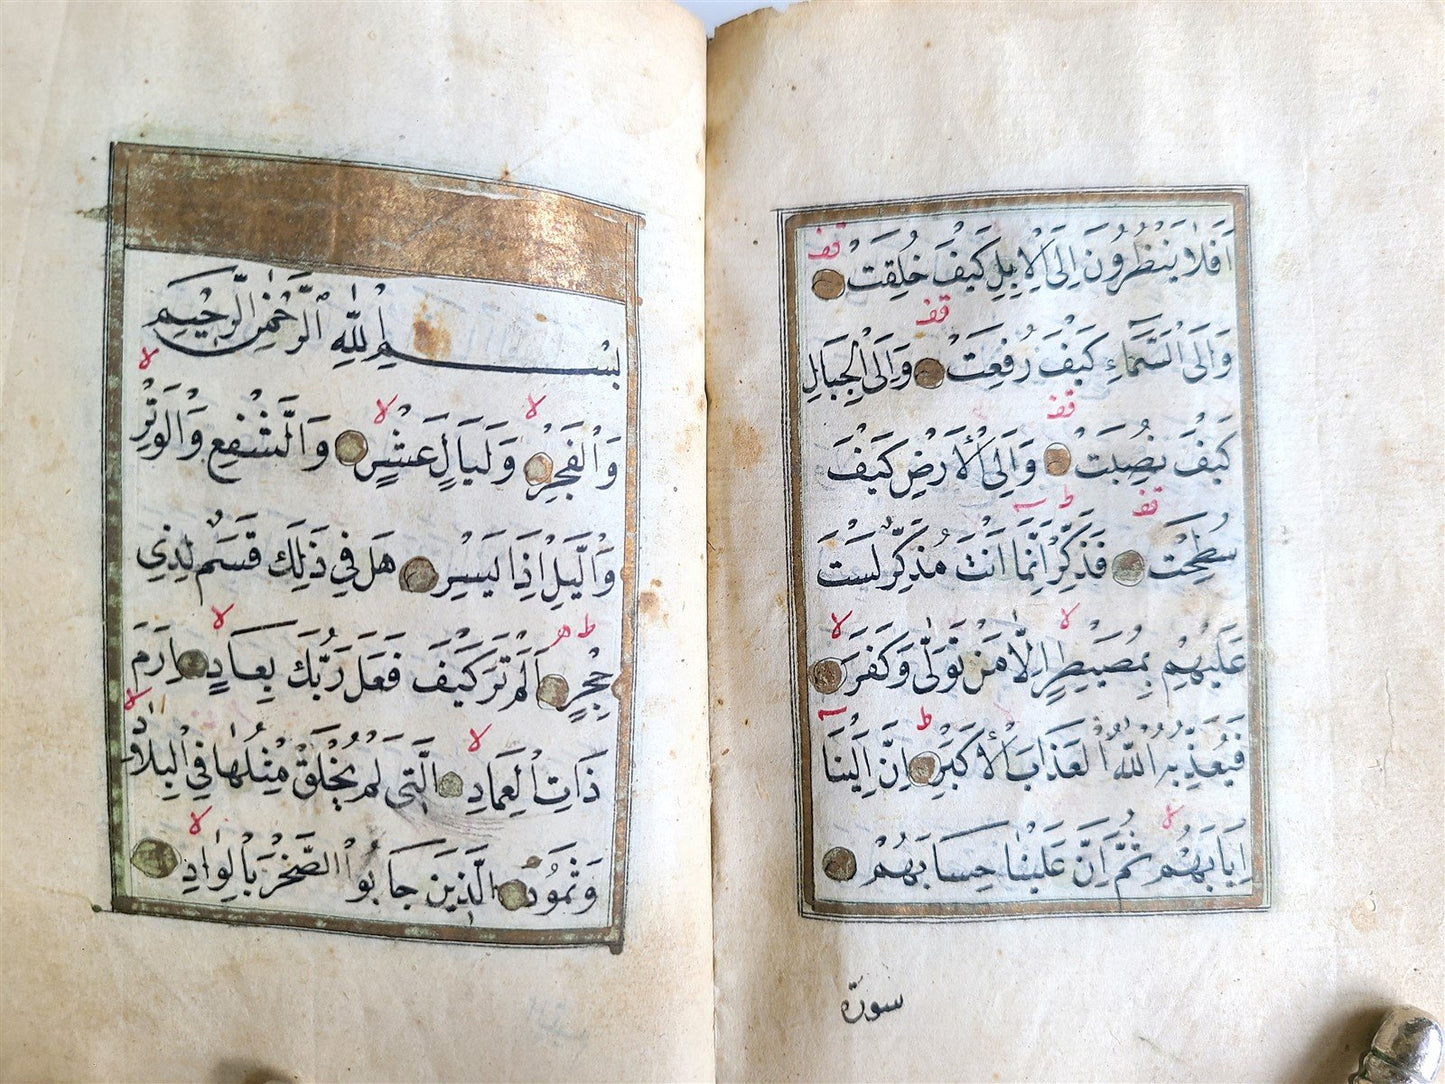 اَفَلَا يَنْظُرُونَ اِلَى الْاِبِلِ كَيْفَ خُلِقَتْ
قف
وَاِلَى السَّمَاءِ كَيْفَ رُفِعَتْ وَاِلَى الْجِبَالِ
قف
كَيْفَ نُصِبَتْ وَاِلَى الْاَرْضِ كَيْفَ
قف
سُطِحَتْ فَذَكِّرْ اِنَّمَا اَنْتَ مُذَكِّرٌ لَسْتَ
قف ط
عَلَيْهِمْ بِمُصَيْطِرٍ اِلَّا مَنْ تَوَلّٰى وَكَفَرَ
لا لا
فَيُعَذِّبُهُ اللّٰهُ الْعَذَابَ الْاَكْبَرَ اِنَّ اِلَيْنَا
ط
اِيَابَهُمْ ثُمَّ اِنَّ عَلَيْنَا حِسَابَهُمْ
لا
سورة
بِسْمِ اللّٰهِ الرَّحْمٰنِ الرَّحِيمِ
وَالْفَجْرِ وَلَيَالٍ عَشْرٍ وَالشَّفْعِ وَالْوَتْرِ
لا لا لا
وَالَّيْلِ اِذَا يَسْرِ هَلْ فِي ذٰلِكَ قَسَمٌ لِذِي
حِجْرٍ اَلَمْ تَرَ كَيْفَ فَعَلَ رَبُّكَ بِعَادٍ اِرَمَ
ط لا
ذَاتِ الْعِمَادِ الَّتِي لَمْ يُخْلَقْ مِثْلُهَا فِي الْبِلَادِ
لا لا
وَثَمُودَ الَّذِينَ جَابُوا الصَّخْرَ بِالْوَادِ
لا